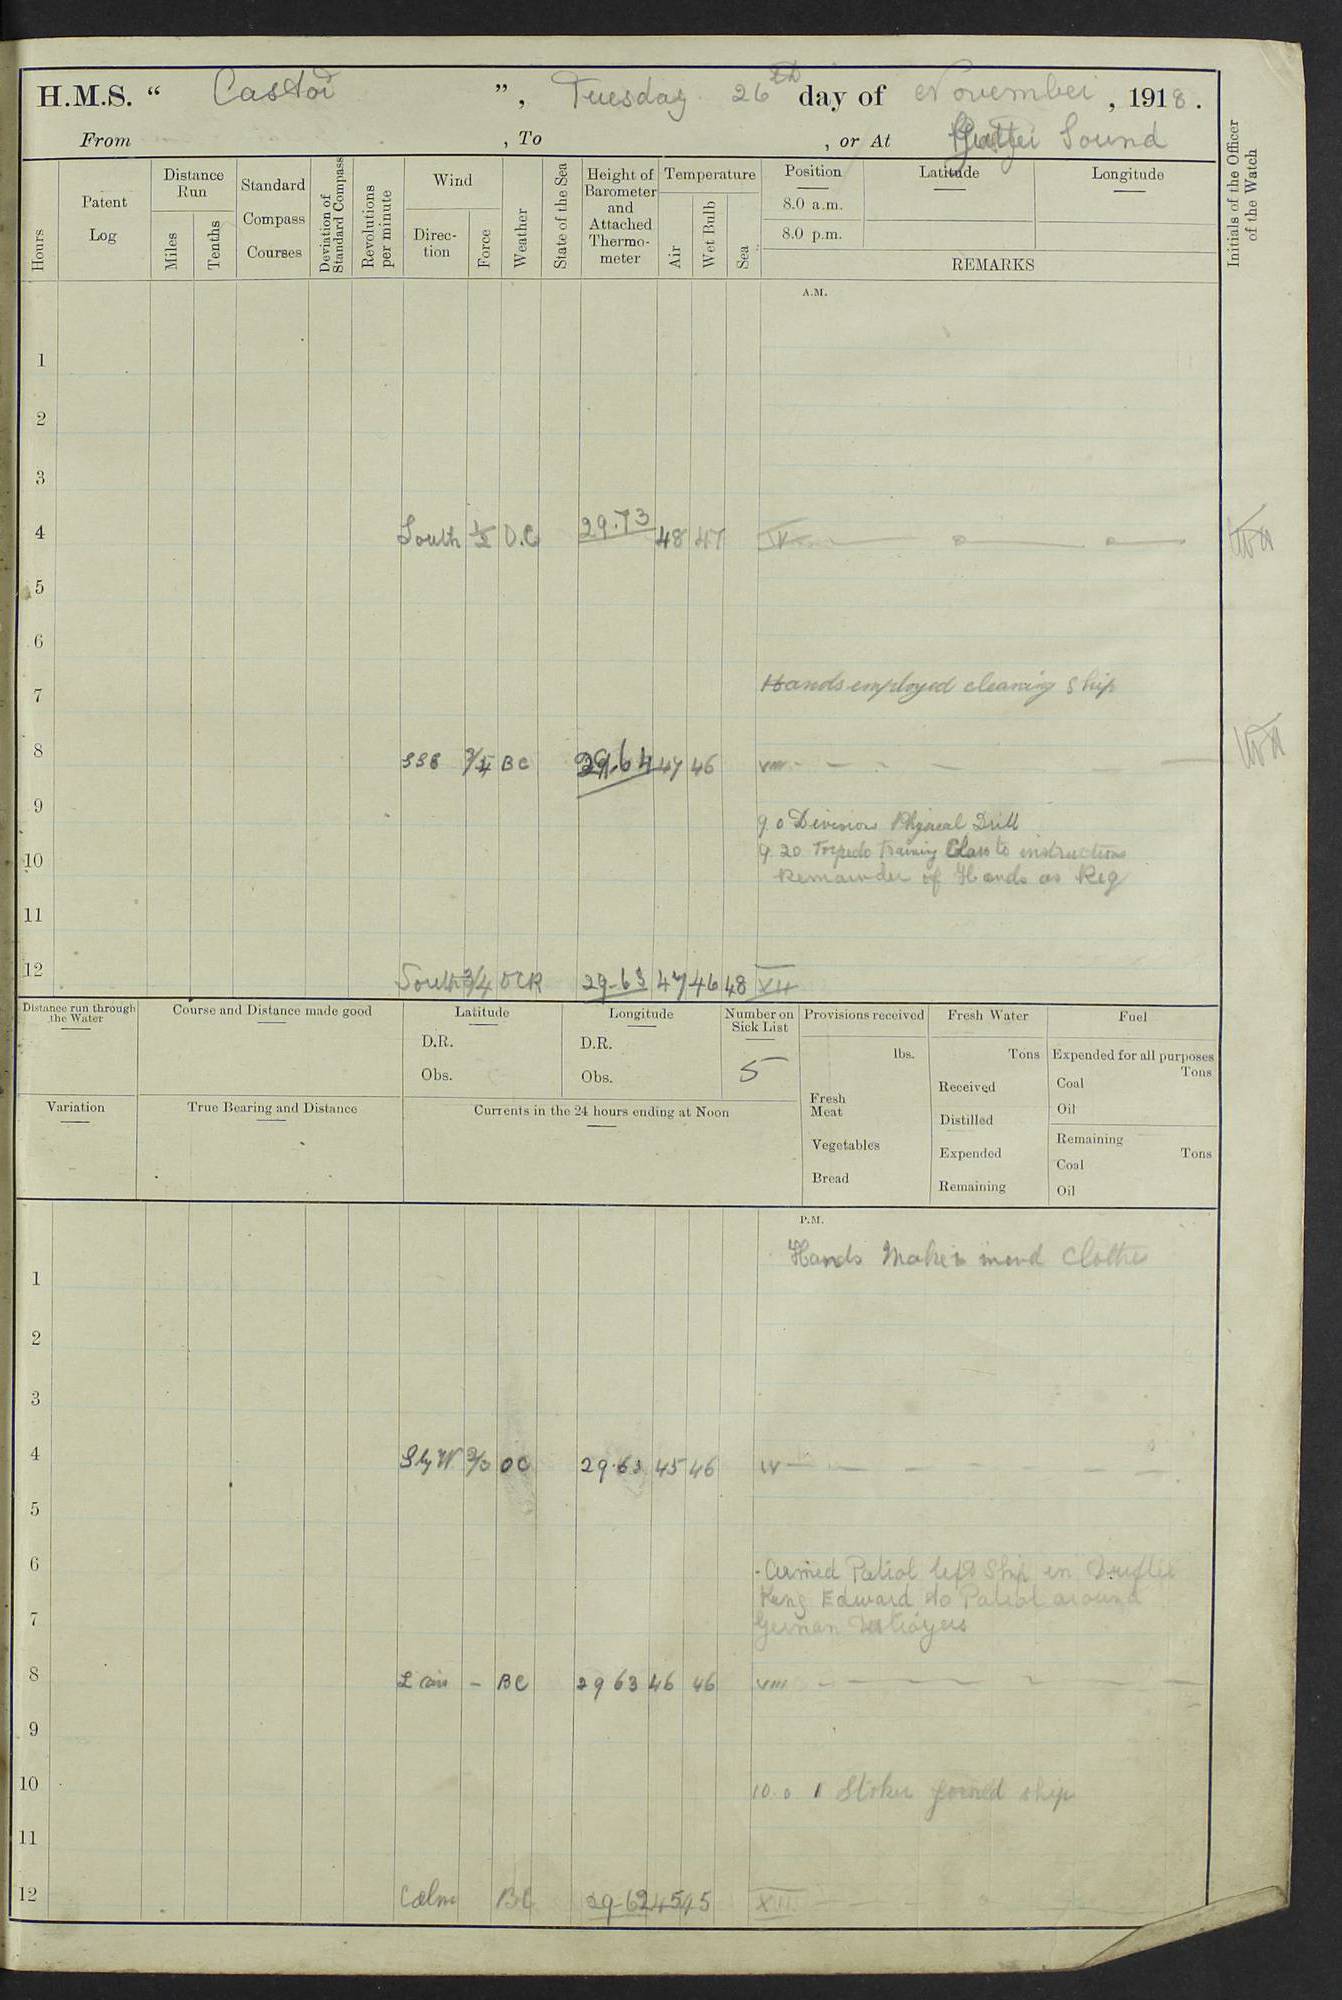 H.M.S. “ Castor ”, Tuesday 26th day of November, 1918.
From , To , or At Sound
Hours
Patent Log
Distance Run
Miles
Tenths
Standard Compass Courses
Deviation of Standard Compass
Revolutions per minute
Wind
Direc-tion
Force
Weather
State of the Sea
Height of Barometer and Attached Thermo-meter
Temperature
Air
Wet Bulb
Sea
Position
8.0 a.m.
8.0 p.m.
Latitude
Longitude
REMARKS
Initials of the Officer of the Watch
A.M.
1
2
3
4 South 1/2 O.C 29.73 48 47 IV
5
6
7 Hands employed cleaning Ship
8 SSE 3/4 BC 29.64 47 46 VIII
9 9.0 Divisions Physical Drill
10 9.20 Torpedo Training Class to instructions
Remainder of Hands as Req
11
12 South 3/4 OCR 29.63 47 46 48 XII
Distance run through the Water
Course and Distance made good
Latitude
D.R.
Obs.
Longitude
D.R.
Obs.
Number on Sick List
5
Provisions received
lbs.
Fresh Meat
Vegetables
Bread
Fresh Water
Tons
Received
Distilled
Expended
Remaining
Fuel
Expended for all purposes
Tons
Coal
Oil
Remaining
Tons
Coal
Oil
Variation
True Bearing and Distance
Currents in the 24 hours ending at Noon
P.M.
Hands Make & mend Clothes
1
2
3
4 S by W 2/3 OC 29.63 45 46 IV
5
6 Armed Patrol left Ship in Drifter
King Edward to Patrol around
7 German Destroyers
8 L airs - BC 29 63 46 46 VIII
9
10 10.0 1 Stoker joined ship
11
12 Calm BC 29.62 45 45 XII